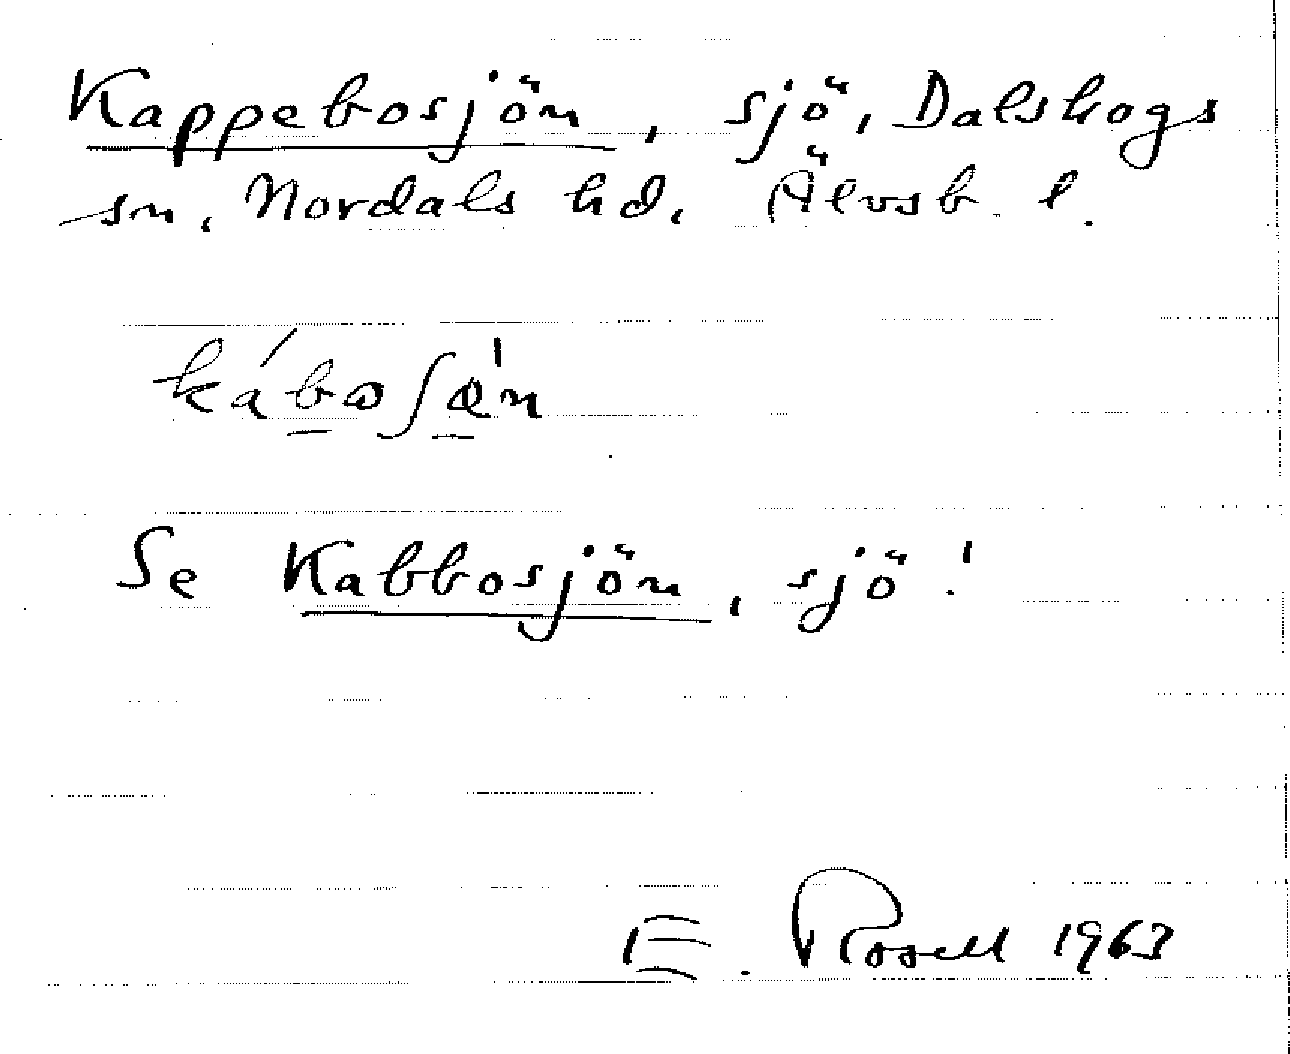 Kappebosjön, sjö, Dalskogs
sn, Nordals hd, Älvsb. l.
kábosʃö̀n
Se Kabbosjön, sjö!
E. Rosell 1963